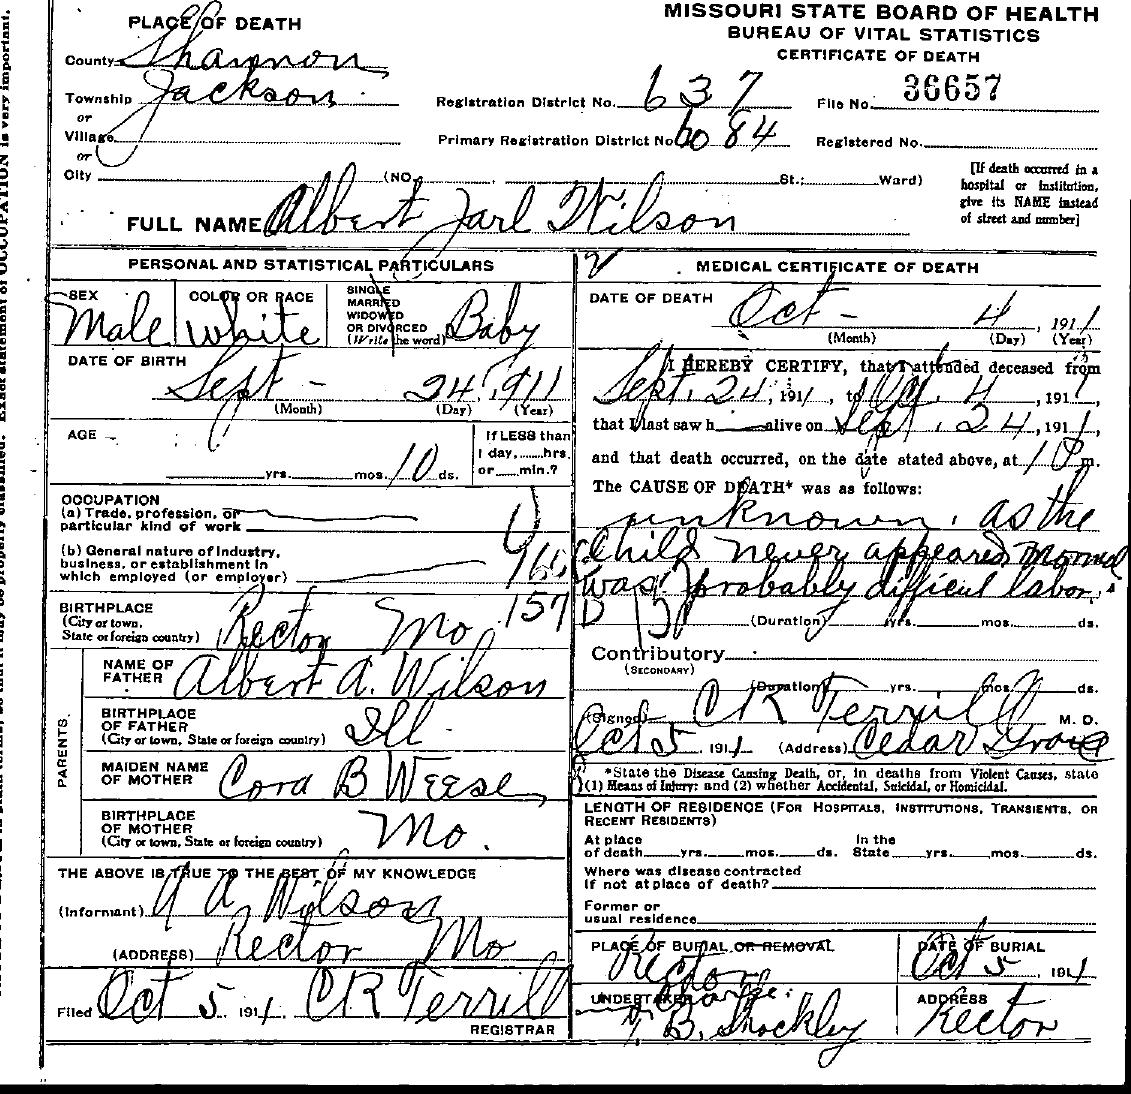 MISSOURI STATE BOARD OF HEALTH
BUREAU OF VITAL STATISTICS
CERTIFICATE OF DEATH
PLACE OF DEATH
County Shannon
Township Jackson
or
Village
or
City (NO. St.; Ward)
Registration District No. 637 File No. 36657
Primary Registration District No. 6084 Registered No.
[If death occurred in a
hospital or institution,
give its NAME instead
of street and number]
FULL NAME Albert Jarl Wilson
PERSONAL AND STATISTICAL PARTICULARS
SEX
Male
COLOR OR RACE
White
SINGLE
MARRIED
WIDOWED
OR DIVORCED
(Write the word)
Baby
DATE OF BIRTH
Sept - 24, 1911
(Month) (Day) (Year)
AGE
yrs. mos. 10 ds.
If LESS than
1 day, hrs.
or min.?
OCCUPATION
(a) Trade, profession, or
particular kind of work
(b) General nature of Industry,
business, or establishment in
which employed (or employer)
BIRTHPLACE
(City or town,
State or foreign country)
Rector Mo
157
PARENTS.
NAME OF
FATHER
Albert A. Wilson
BIRTHPLACE
OF FATHER
(City or town, State or foreign country)
Ill.
MAIDEN NAME
OF MOTHER
Cora B Weese
BIRTHPLACE
OF MOTHER
(City or town, State or foreign country)
Mo.
THE ABOVE IS TRUE TO THE BEST OF MY KNOWLEDGE
(Informant) A A Wilson
(ADDRESS) Rector Mo
Filed Oct 5 1911. CR Terrill
REGISTRAR
MEDICAL CERTIFICATE OF DEATH
DATE OF DEATH
Oct - 4, 1911
(Month) (Day) (Year)
I HEREBY CERTIFY, that I attended deceased from
Sept. 24, 191 , to Oct. 4, 191
that I last saw h alive on Sept. 24, 1911,
and that death occurred, on the date stated above, at 1 P m.
The CAUSE OF DEATH* was as follows:
unknown. as the
Child never appeared normal
was probably difficul labor.
(Duration) yrs. mos. ds.
Contributory
(SECONDARY)
(Duration) yrs. mos. ds.
(Signed) CR Terrill M. D.
Oct 5 1911 (Address) Cedar Grove
*State the Disease Causing Death, or, in deaths from Violent Causes, state
(1) Means of Injury; and (2) whether Accidental, Suicidal, or Homicidal.
LENGTH OF RESIDENCE (FOR HOSPITALS, INSTITUTIONS, TRANSIENTS, OR
RECENT RESIDENTS)
At place
of death yrs. mos. ds.
In the
State yrs. mos. ds.
Where was disease contracted
if not at place of death?
Former or
usual residence
PLACE OF BURIAL OR REMOVAL
Rector
DATE OF BURIAL
Oct 5, 1911
UNDERTAKER
B. Shockley
ADDRESS
Rector